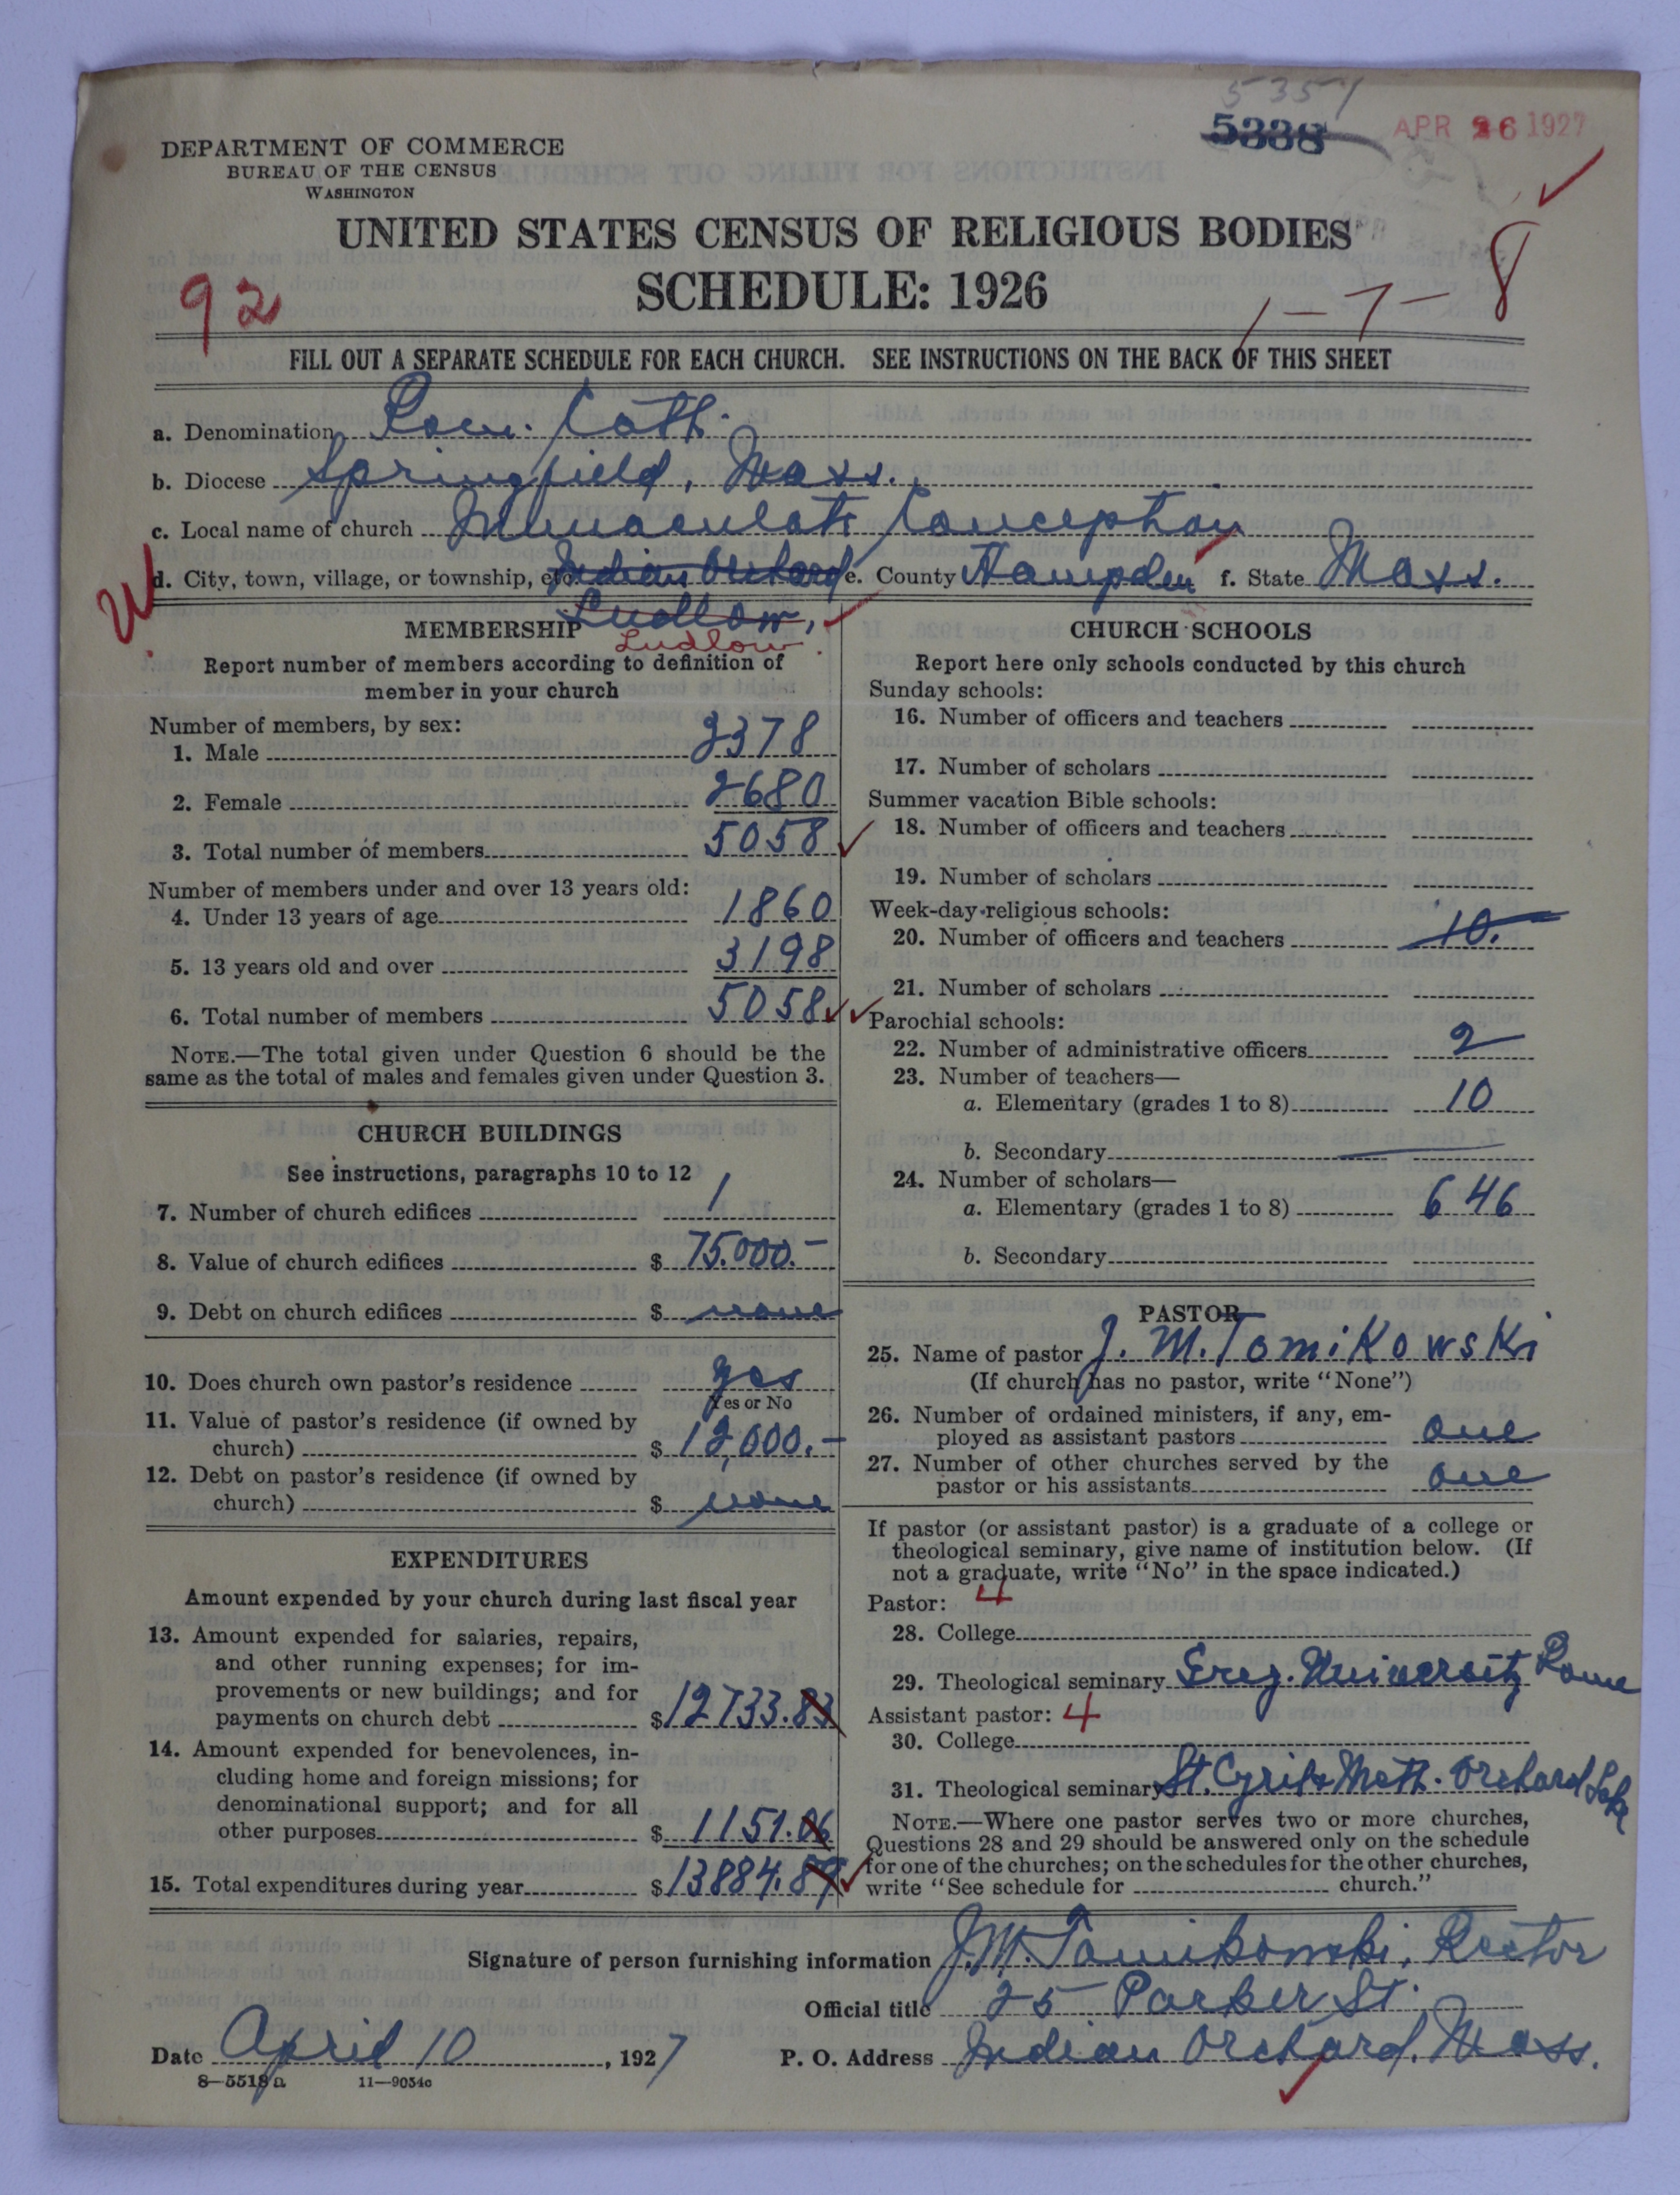 5357
5338
APR 26 1927
DEPARTMENT OF COMMERCE
BUREAU OF THE CENSUS
WASHINGTON
UNITED STATES CENSUS OF RELIGIOUS BODIES
SCHEDULE: 1926
92
1-7-8
FILL OUT A SEPARATE SCHEDULE FOR EACH CHURCH. SEE INSTRUCTIONS ON THE BACK OF THIS SHEET
a. Denomination Rom. Cath.
b. Diocese Springfield, Mass.
c. Local name of church Immaculate Conception
d. City, town, village, or township, etc. Indian Orchard e. County Hampden f. State Mass.
Ludlow,
Ludlow.
MEMBERSHIP
Report number of members according to definition of
member in your church
Number of members, by sex:
1. Male 2378
2. Female 2680
3. Total number of members 5058
Number of members under and over 13 years old:
4. Under 13 years of age 1860
5. 13 years old and over 3198
6. Total number of members 5058
NOTE.—The total given under Question 6 should be the
same as the total of males and females given under Question 3.
CHURCH BUILDINGS
See instructions, paragraphs 10 to 12
7. Number of church edifices 1
8. Value of church edifices $ 75.000.-
9. Debt on church edifices $ none
10. Does church own pastor's residence yes
Yes or No
11. Value of pastor's residence (if owned by
church) $ 12,000.-
12. Debt on pastor's residence (if owned by
church) $ none
EXPENDITURES
Amount expended by your church during last fiscal year
13. Amount expended for salaries, repairs,
and other running expenses; for im-
provements or new buildings; and for
payments on church debt $ 12733.83
14. Amount expended for benevolences, in-
cluding home and foreign missions; for
denominational support; and for all
other purposes $ 1151.06
15. Total expenditures during year $ 13884.89
CHURCH SCHOOLS
Report here only schools conducted by this church
Sunday schools:
16. Number of officers and teachers
17. Number of scholars
Summer vacation Bible schools:
18. Number of officers and teachers
19. Number of scholars
Week-day religious schools:
20. Number of officers and teachers 10.
21. Number of scholars
Parochial schools:
22. Number of administrative officers 2
23. Number of teachers—
a. Elementary (grades 1 to 8) 10
b. Secondary
24. Number of scholars—
a. Elementary (grades 1 to 8) 646
b. Secondary
PASTOR
25. Name of pastor J. M. Tomikowski
(If church has no pastor, write "None")
26. Number of ordained ministers, if any, em-
ployed as assistant pastors one
27. Number of other churches served by the
pastor or his assistants one
If pastor (or assistant pastor) is a graduate of a college or
theological seminary, give name of institution below. (If
not a graduate, write "No" in the space indicated.)
Pastor: 4
28. College
29. Theological seminary Greg. University Rome
Assistant pastor: 4
30. College
31. Theological seminary St. Cyril & Meth. Orchard Lake
NOTE.—Where one pastor serves two or more churches,
Questions 28 and 29 should be answered only on the schedule
for one of the churches; on the schedules for the other churches,
write "See schedule for church."
Signature of person furnishing information J. M. Tomikowski, Rector
Official title 25 Parker St.
Date April 10, 1927 P. O. Address Indian Orchard, Mass.
8-5518a 11-9034c